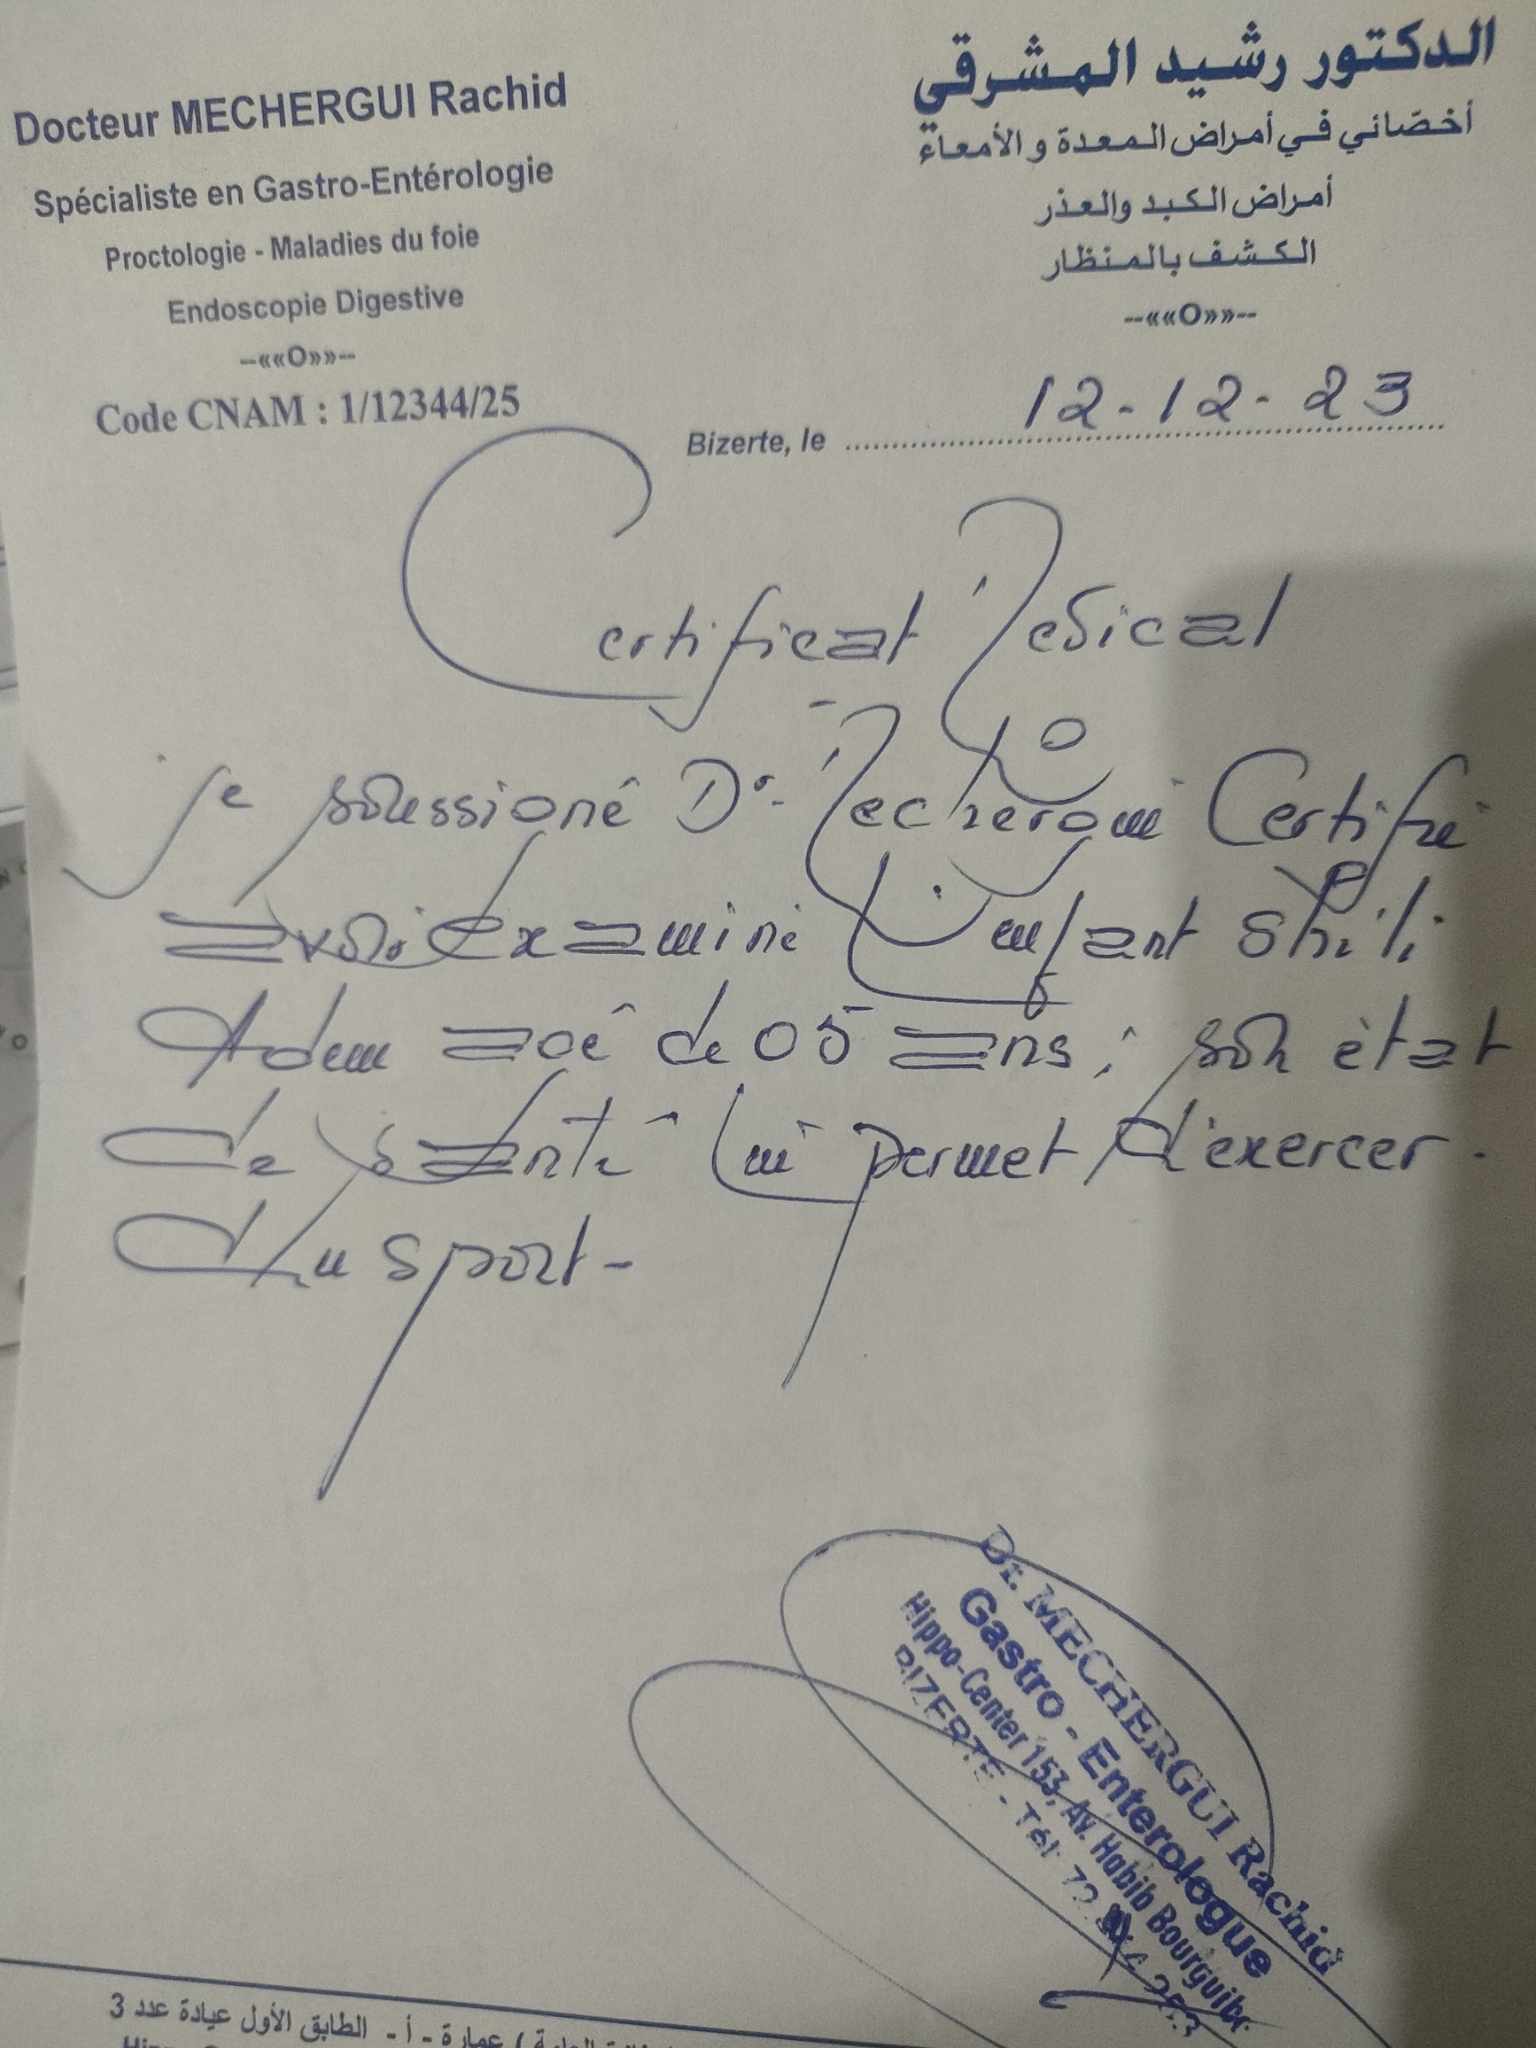 Docteur MECHERGUI Rachid
Spécialiste en Gastro-Entérologie
Proctologie - Maladies du foie
Endoscopie Digestive
--««O»»--
Code CNAM : 1/12344/25
الدكتور رشيد المشرقي
أخصّائي في أمراض المعدة و الأمعاء
أمراض الكبد والعذر
الكشف بالمنظار
--««O»»--
Bizerte, le 12-12-23
Certificat Médical
Je soussioné Dr. Mechergui Certifie
avoir examiné L'enfant Shili
Adem agé de 05 ans ; son état
de santé lui permet d'exercer
du sport-
Dr. MECHERGUI Rachid
Gastro - Enterologue
Hippo-Center 153, Av. Habib Bourguiba
BIZERTE - Tél 72
عمارة - أ - الطابق الأول عيادة عدد 3